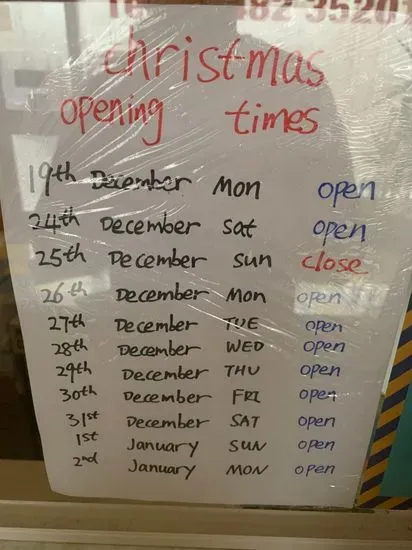 182 35201
christmas
opening times
19th December Mon open
24th December Sat open
25th December sun close
26th December Mon open
27th December TUE open
28th December WED open
29th December THU open
30th December FRI open
31st December SAT open
1st January SUN open
2nd January MON open